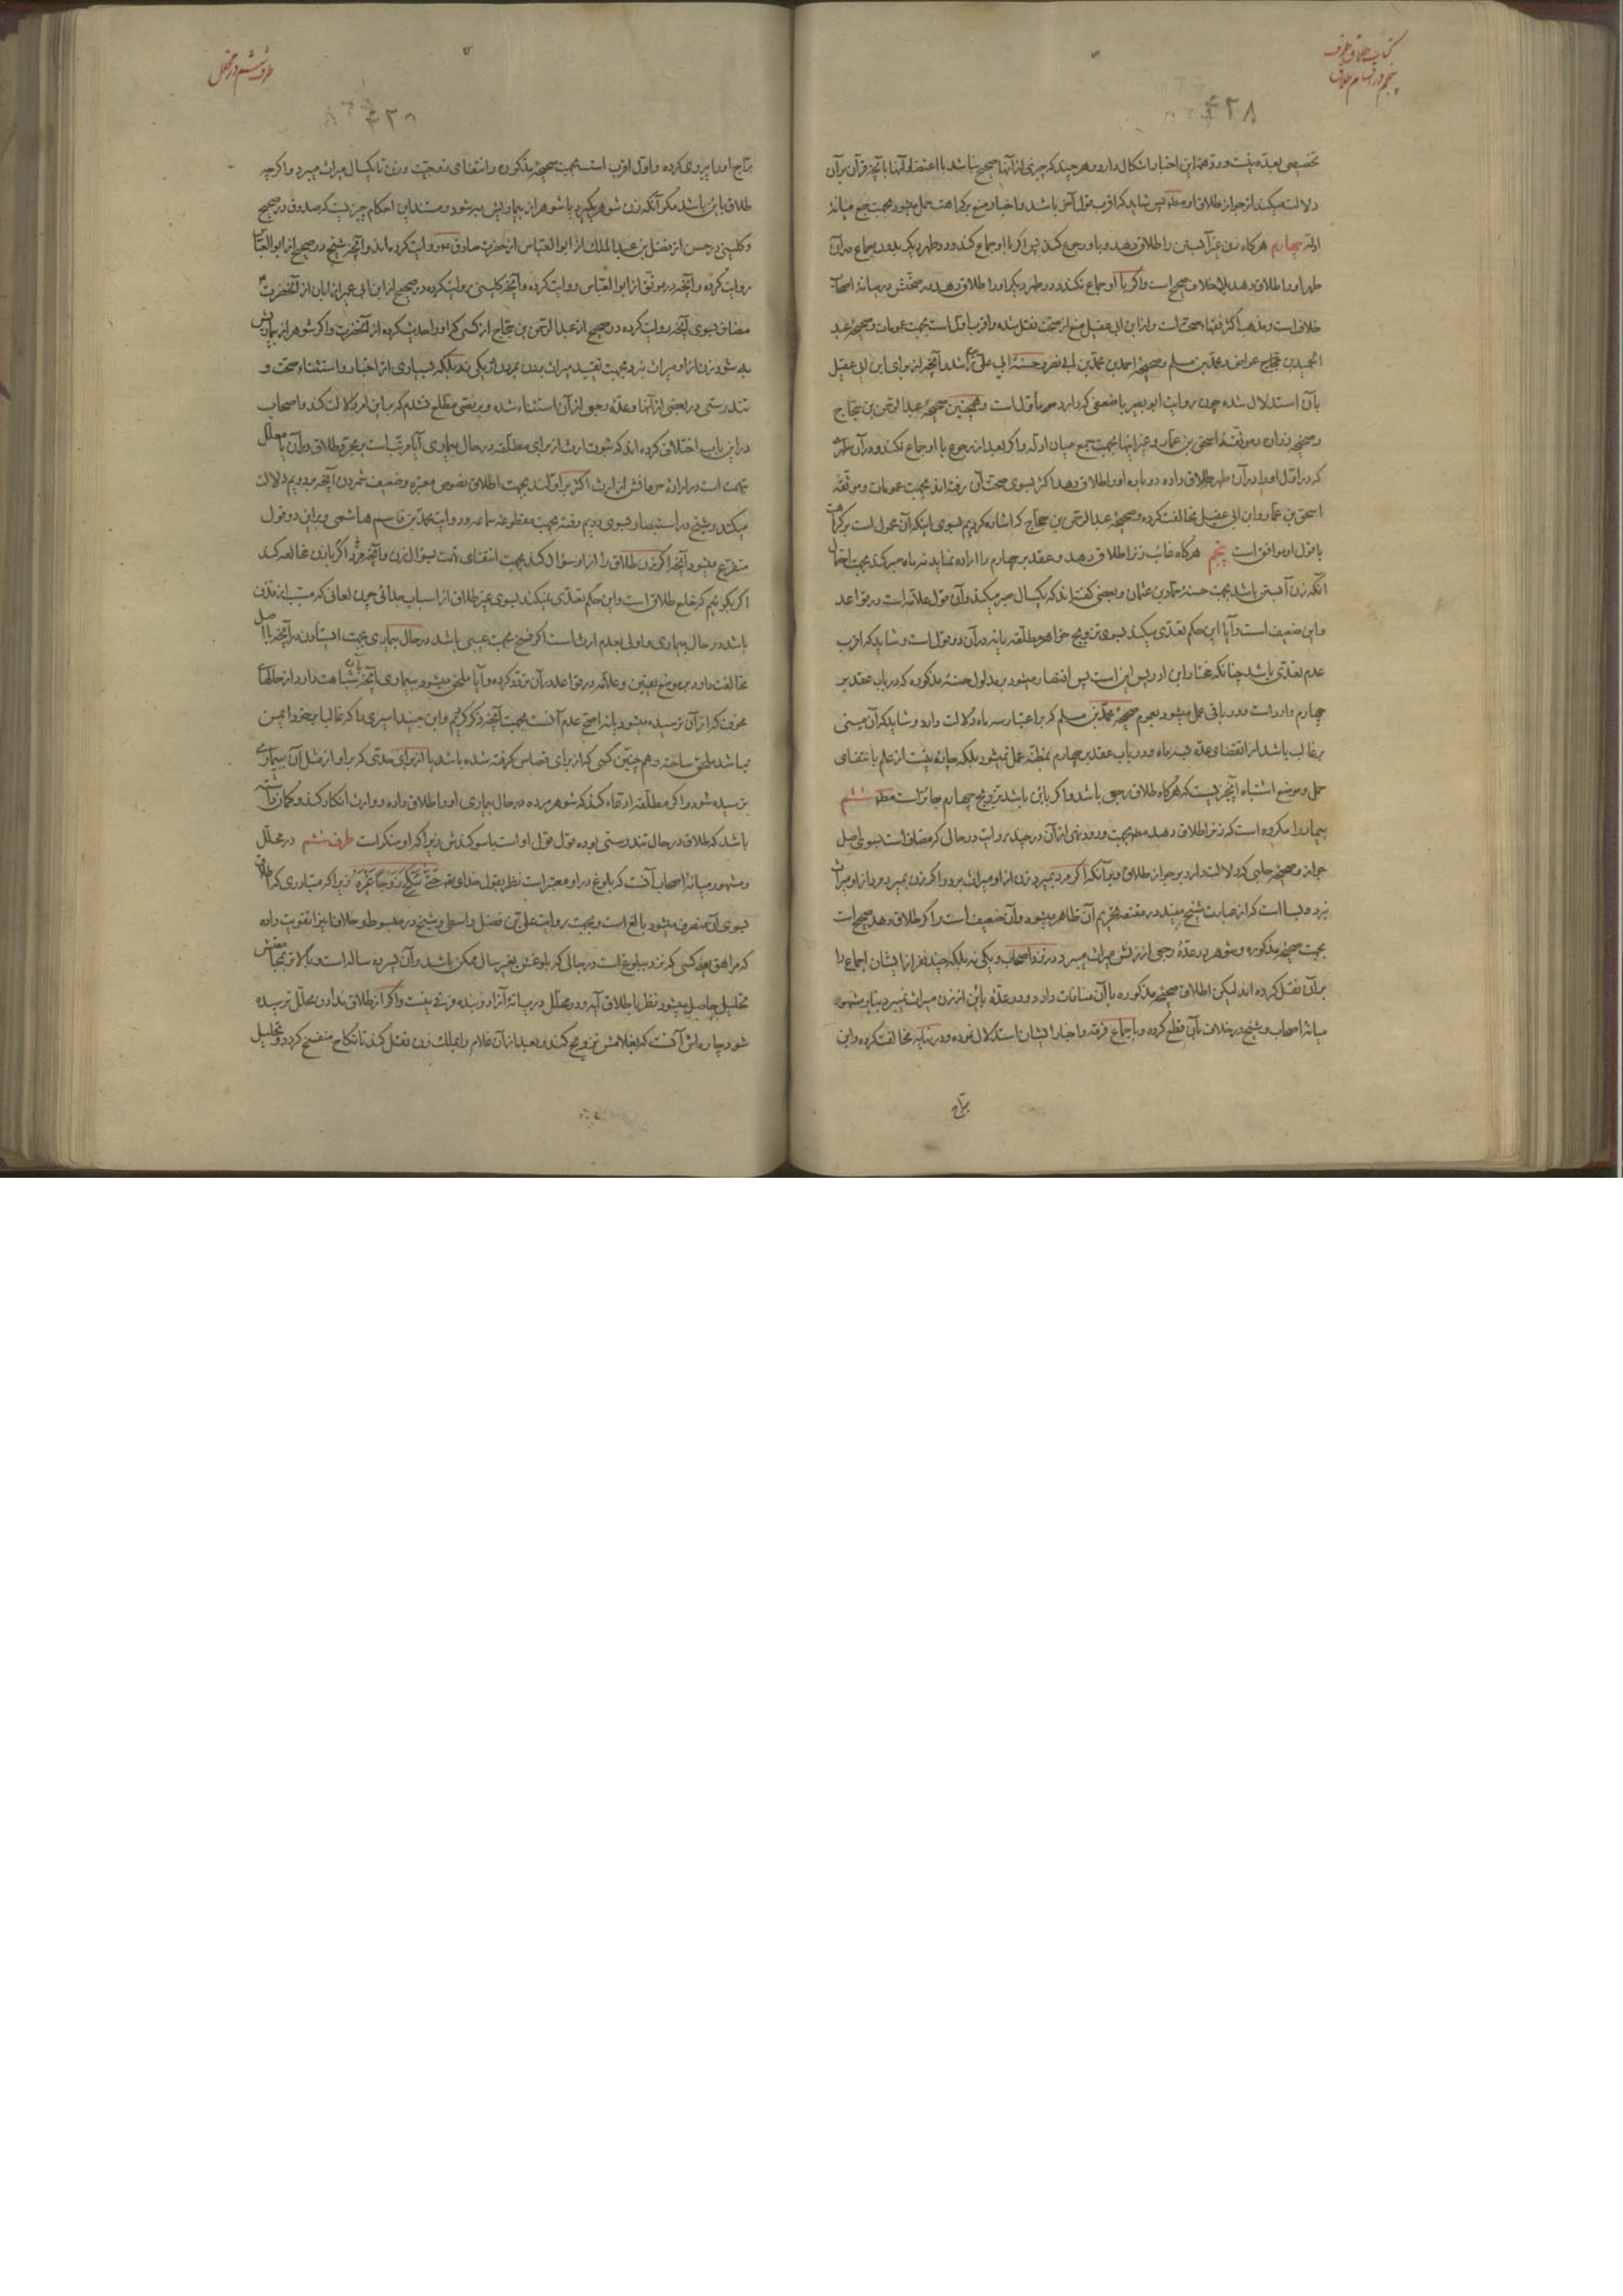 کتاب طلاق طرف
پنجم در اقسام طلاق
۴۲۸
دلالت میکند از جواز طلاق او مط پس شاید که اقرب قول آخر باشد و اخبار منع بر کراهت حمل میشود بجهت جمع میانهٔ
ادله چهارم هرگاه زن غیر آبستن را طلاق دهد و باو رجوع کند پس اگر با او جماع کند و در طهر دیگر بدون جماع در آن
طهر او را طلاق دهد بلاخلاف صحیح است و اگر با او جماع نکند و در طهر دیگر او را طلاق دهد در صحتش در میانهٔ اصحاب
خلاف است و مذهب اکثر فقهاء صحت است و از ابن ابی عقیل منع از صحت نقل شده و اقرب اول است بجهت عمومات و صحیحهٔ عبد
الحمید بن عواض و محمد بن مسلم و صحیحهٔ احمد بن محمد بن ابی نصر و حسنهٔ ابی علی و آنچه از برای ابن ابی عقیل
بآن استدلال شده چون روایت ابو بصیر با ضعفی که دارد مأول است و همچنین صحیحهٔ عبد الرحمن بن حجاج
و موثقهٔ اسحق بن عمار و غیر اینها بجهت جمع میان ادله و اگر بعد از رجوع با او جماع نکند و در آن طهر
که در اول او را در آن طهر طلاق داده دوباره او را طلاق دهد اکثر بسوی صحت آن رفته‌اند بجهت عمومات و موثقه
اسحق بن عمار و ابن ابی عقیل مخالفت کرده و صحیحهٔ عبد الرحمن بن حجاج که اشاره کردیم بسوی اینکه آن محمول است بر کراهت
با قول او موافق است پنجم هرگاه غائب زنرا طلاق دهد و عقد بر چهارم را اراده نماید نه ماه صبر کند بجهت احتمال
آنکه زن آبستن باشد بجهت حسنهٔ حماد بن عثمان و بعضی گفته‌اند که یکسال صبر میکند و آن قول علامه است در قواعد
و این ضعیف است و آیا این حکم تعدی میکند بسوی تزویج خواهر مطلقه یا نه در آن دو قول است و شاید که اقرب
عدم تعدی باشد چنانکه مختار ابن ادریس این است پس اقتصار میشود بمدلول حسنهٔ مذکوره که در باب عقد بر
چهارم وارد است و در باقی عمل میشود بعموم صحیحهٔ محمد بن مسلم که بر اعتبار سه ماه دلالت دارد و شاید که آن مبنی
بر غالب باشد از انقضای عده بسه ماه و در باب عقد بر چهارم بمظنه عمل نمیشود بلکه چاره نیست از علم بانتفای
حمل و موضع اشتباه آنچیزیست که هرگاه طلاق رجعی باشد و اگر باین باشد تزویج چهارم جائز است مط ششم
بیمار را مکروه است که زنرا طلاق دهد مط بجهت ورود نهی از آن در چند روایت در حالی که مضاف است بسوی اصل
جواز و صحیحهٔ حلبی که دلالت دارد بر جواز طلاق و بآنکه اگر مرد بمیرد زن از او میراث برد و اگر زن بمیرد مرد از او میراث
نبرد و بسا است که از عبارت شیخ مفید در مقنعه تحریم آن ظاهر میشود و آن ضعیف است و اگر طلاق دهد صحیح است
بجهت صحیحهٔ مذکوره و شوهر در عدهٔ رجعی از زنش میراث میبرد در نزد اصحاب و یکی نه بلکه چند نفر از ایشان اجماع را
بر آن نقل کرده‌اند لیکن اطلاق صحیحهٔ مذکوره با آن منافات دارد و در عدهٔ باین از زن میراث نمیبرد بنابر مشهور
میانهٔ اصحاب و شیخ در خلاف بآن قطع کرده و باجماع فرقه و اخبار ایشان استدلال نموده و در نهایه مخالفت کرده و ابن
براج
طرف ششم در محلل
براج او را پیروی کرده و اول اقرب است بجهت صحیحهٔ مذکوره و انتفای زوجیت و زن تا یکسال میراث میبرد و اگرچه
طلاق باین باشد مگر آنکه زن شوهر بگیرد یا شوهر از بیماریش به شود و مستند این احکام چیزیست که صدوق در صحیح
و کلینی در حسن از فضل بن عبد الملک از ابو العباس از حضرت صادق روایت کرده‌اند و آنچه شیخ در صحیح از ابو العباس
روایت کرده و آنچه در موثق از ابو العباس روایت کرده و آنچه کلینی روایت کرده در صحیح از ابن ابی عمیر از ابان از آنحضرت
مضاف بسوی آنچه روایت کرده در صحیح از عبد الرحمن بن حجاج از کسی که او را حدیث کرده از آنحضرت و اگر شوهر از بیماریش
به شود زن از او میراث نبرد بجهت تقیید میراث بدن در یکی نه بلکه بسیاری از اخبار و استثناء صحت و
تندرستی در بعضی از آنها و عدهٔ رجعی از آن استثناء شده و بر نصی مطلع نشدم که بر این امر دلالت کند و اصحاب
در این باب اختلاف کرده‌اند که ثبوت ارث از برای مطلقه در حال بیماری آیا مرتبست بر مجرد طلاق در آن یا معلل
بتهمت است در ارادهٔ حرمانش از ارث اکثر بر اولند بجهت اطلاق نصوص معتبره و ضعیف شمردن آنچه بر دویم دلالت
میکند و شیخ در استبصار بسوی دویم رفته بجهت مقطوعهٔ سماعه و روایت محمد بن قاسم هاشمی و بر این دو قول
متفرع میشود آنچه اگر زن طلاق را از او سؤال کند بجهت انتفای تهمت بسؤال زن و آنچه مرد اگر با زن مخالعه کند
اگر بگوئیم که خلع طلاق است و این حکم تعدی نمیکند بسوی غیر طلاق از اسباب جدائی چون لعانی که مسبب از قذف
باشد در حال بیماری و اولی بعدم ارث است اگر فسخ بجهت عیبی باشد در حال بیماری بجهت ایستادن در آنچه با اصل
مخالفت دارد بر موضع یقین و علامه در قواعد در آن تردد کرده و آیا ملحق میشود ببیماری آنچه بآن شباهت دارد از حالهای
مخوف که از آن ترسیده میشود یا نه اصح عدم آنست بجهت آنچه ذکر کردیم و ابن جنید اسیری را که غالبا بر خود ایمن
نباشد ملحق ساخته و هم چنین کسی که از برای قصاص گرفته شده باشد یا از برای حدی که بر او از مثل آن بیماری
ترسیده شود و اگر مطلقه ادعاء کند که شوهر مرده در حال بیماری او را طلاق داده و وارث انکار کند و گمان داشته
باشد که طلاق در حال تندرستی بوده قول قول او است با سوگندش زیرا که او منکر است طرف ششم در محلل
و مشهور میانهٔ اصحاب آنست که بلوغ در او معتبر است نظر بقول خدای تعالی حَتّی تَنْکِحَ زَوْجًا غَیْرَهُ زیرا که متبادری که اطلاق
بسوی آن منصرف میشود بالغ است و بجهت روایت علی بن فضل واسطی و شیخ در مبسوط و خلاف نیز تقویت داده
که مراهق یعنی کسی که نزدیک ببلوغ است در حالی که بلوغش بغیر سال ممکن باشد و آن پسر ده ساله است بمجامعتش
تحلیل حاصل میشود نظر باطلاق آیه و در محلل در میانهٔ آزاد و بنده فرقی نیست و اگر از طلاق ندادن محلل ترسیده
شود چاره‌اش آنست که بغلامش تزویج کند و بعد از آن غلام را بملک زن نقل کند تا نکاح منفسخ گردد و تحلیل